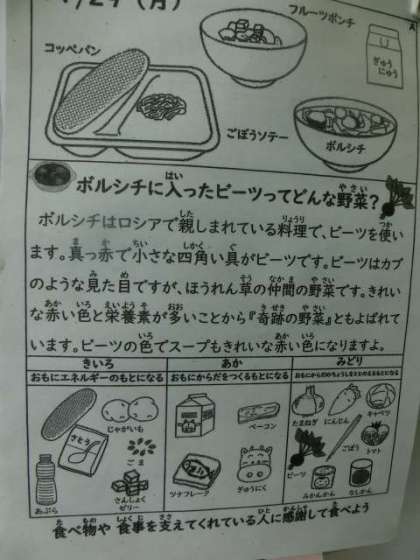 1/29 (月)
A
フルーツポンチ
ぎゅうにゅう
コッペパン
ごぼうソテー
ボルシチ
ボルシチに入ったビーツってどんな野菜?
ボルシチはロシアで親しまれている料理で、ビーツを使い
ます。真っ赤で小さな四角い具がビーツです。ビーツはカブ
のような見た目ですが、ほうれん草の仲間の野菜です。きれい
な赤い色と栄養素が多いことから『奇跡の野菜』ともよばれて
います。ビーツの色でスープもきれいな赤い色になりますよ。
きいろ あか みどり
おもにエネルギーのもとになる おもにからだをつくるもとになる おもにからだのちょうしをととのえるもとになる
じゃがいも
さとう
ごま
あぶら
さんしょくゼリー
ベーコン
ツナフレーク
ぎゅうにく
たまねぎ
にんじん
キャベツ
ごぼう
トマト
ビーツ
みかんかん
なしかん
食べ物や食事を支えてくれている人に感謝して食べよう